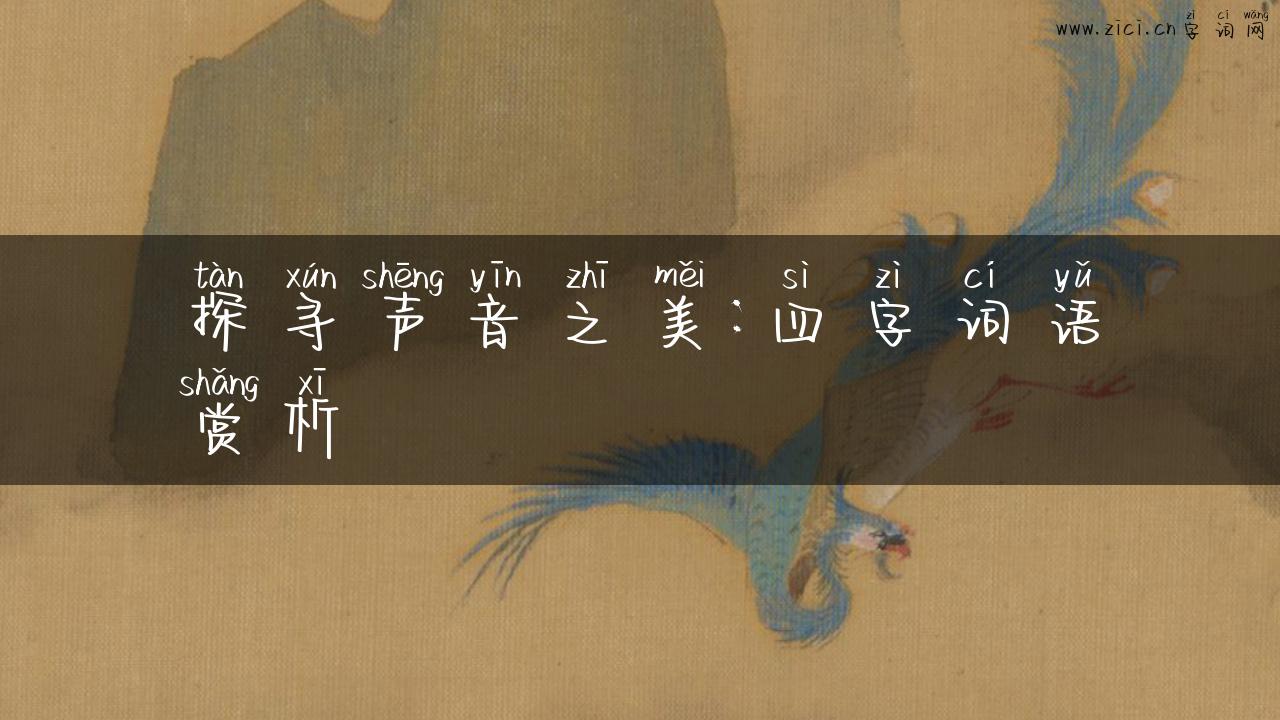 zì cí wǎng
www.zici.cn字词网
tàn xún shēng yīn zhī měi sì zì cí yǔ
探寻声音之美：四字词语
shǎng xī
赏析